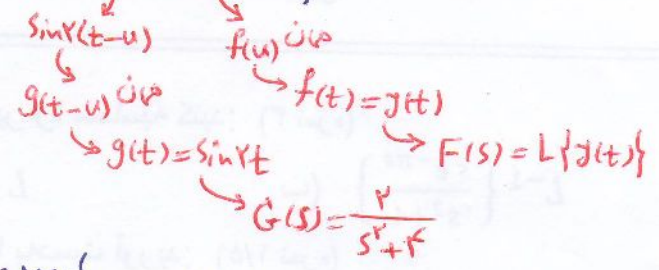 sin۲(t-u)
f(u) همان
g(t-u) همان
f(t)=y(t)
g(t)=sin۲t
F(s)=L{y(t)}
G(s)=۲/(s^۲+۴)